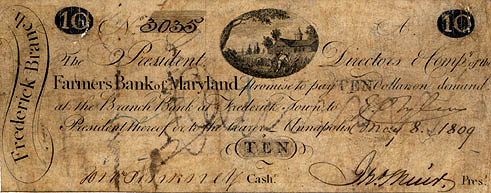 10 No. 3035 A. 10
Frederick Branch
The President, Directors & Comp.y of the
Farmers Bank of Maryland promise to pay TEN dollars on demand
at the Branch Bank at Frederick Town to
President thereof or to the bearer Annapolis May 8. 1809
TEN
Cash.r Jno Muir Pres.t